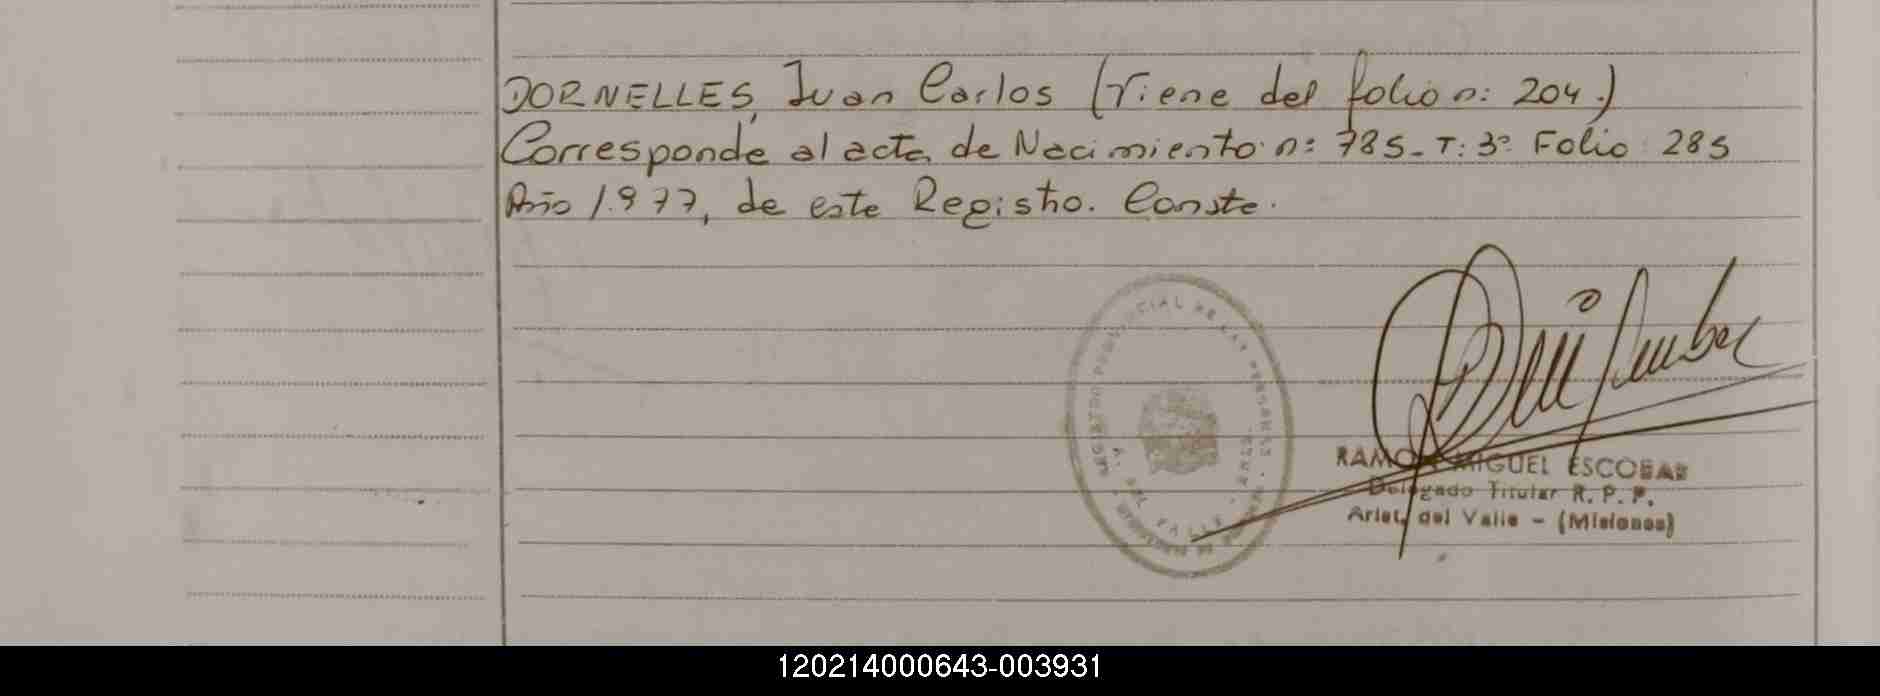 DORNELLES, Juan Carlos (Viene del folio n: 204.)
Corresponde al acta de Nacimiento n: 785- T: 3º Folio: 285
Año 1.977, de este Registro. Conste.
REGISTRO PROVINCIAL DE LAS PERSONAS
RAMON MIGUEL ESCOBAR
Delegado Titular R. P. P.
Arist. del Valle - (Misiones)
120214000643-003931